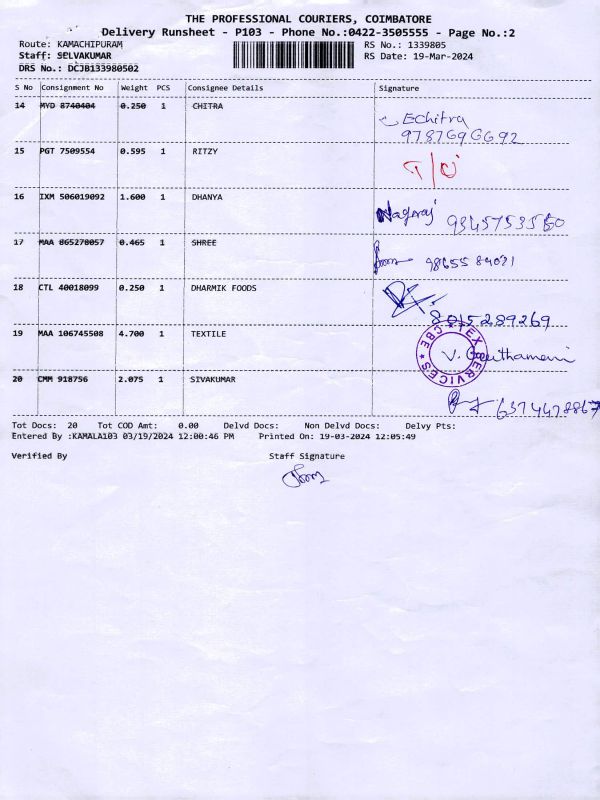 THE PROFESSIONAL COURIERS, COIMBATORE
Delivery Runsheet - P103 - Phone No.:0422-3505555 - Page No.:2
Route: KAMACHIPURAM RS No.: 1339805
Staff: SELVAKUMAR RS Date: 19-Mar-2024
DRS No.: DCJB133980502
S No Consignment No Weight PCS Consignee Details Signature
14 MYD 8740404 0.250 1 CHITRA
EChitra
9787696692
15 PGT 7509554 0.595 1 RITZY
16 IXM 506019092 1.600 1 DHANYA
Nagaraj 9345753560
17 MAA 865278057 0.465 1 SHREE
18 CTL 40018099 0.250 1 DHARMIK FOODS
8015289269
19 MAA 106745508 4.700 1 TEXTILE
TEX SERVICES CBE
20 CMM 918756 2.075 1 SIVAKUMAR
6374478867
Tot Docs: 20 Tot COD Amt: 0.00 Delvd Docs: Non Delvd Docs: Delvy Pts:
Entered By :KAMALA103 03/19/2024 12:00:46 PM Printed On: 19-03-2024 12:05:49
Verified By Staff Signature